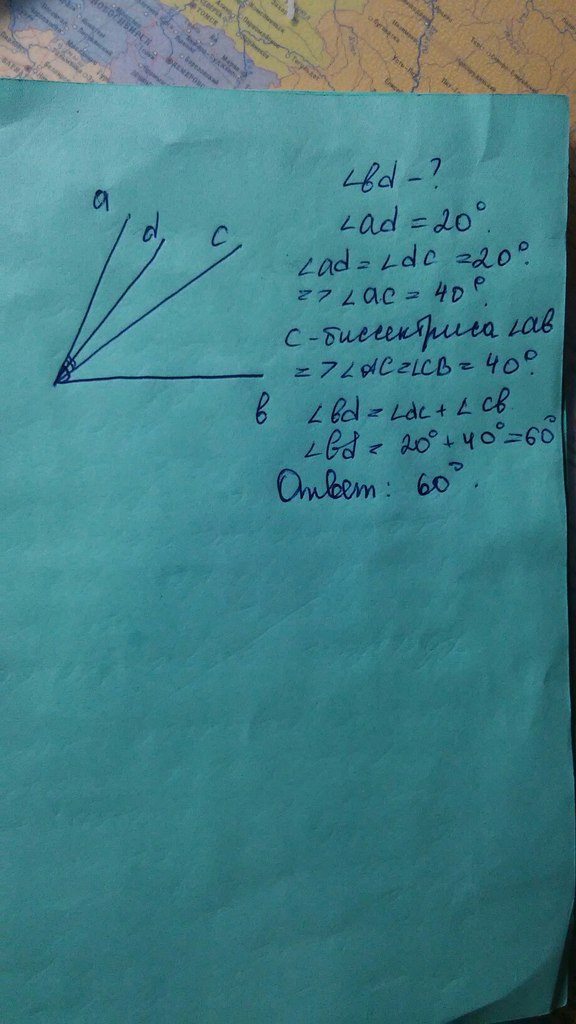 a
d
c
в
∠вd - ?
∠ad = 20°.
∠ad = ∠dc = 20°.
=> ∠ac = 40°.
c - биссектриса ∠ав
=> ∠AC = ∠CB = 40°.
∠вd = ∠dc + ∠cв
∠вd = 20° + 40° = 60°
Ответ: 60°.